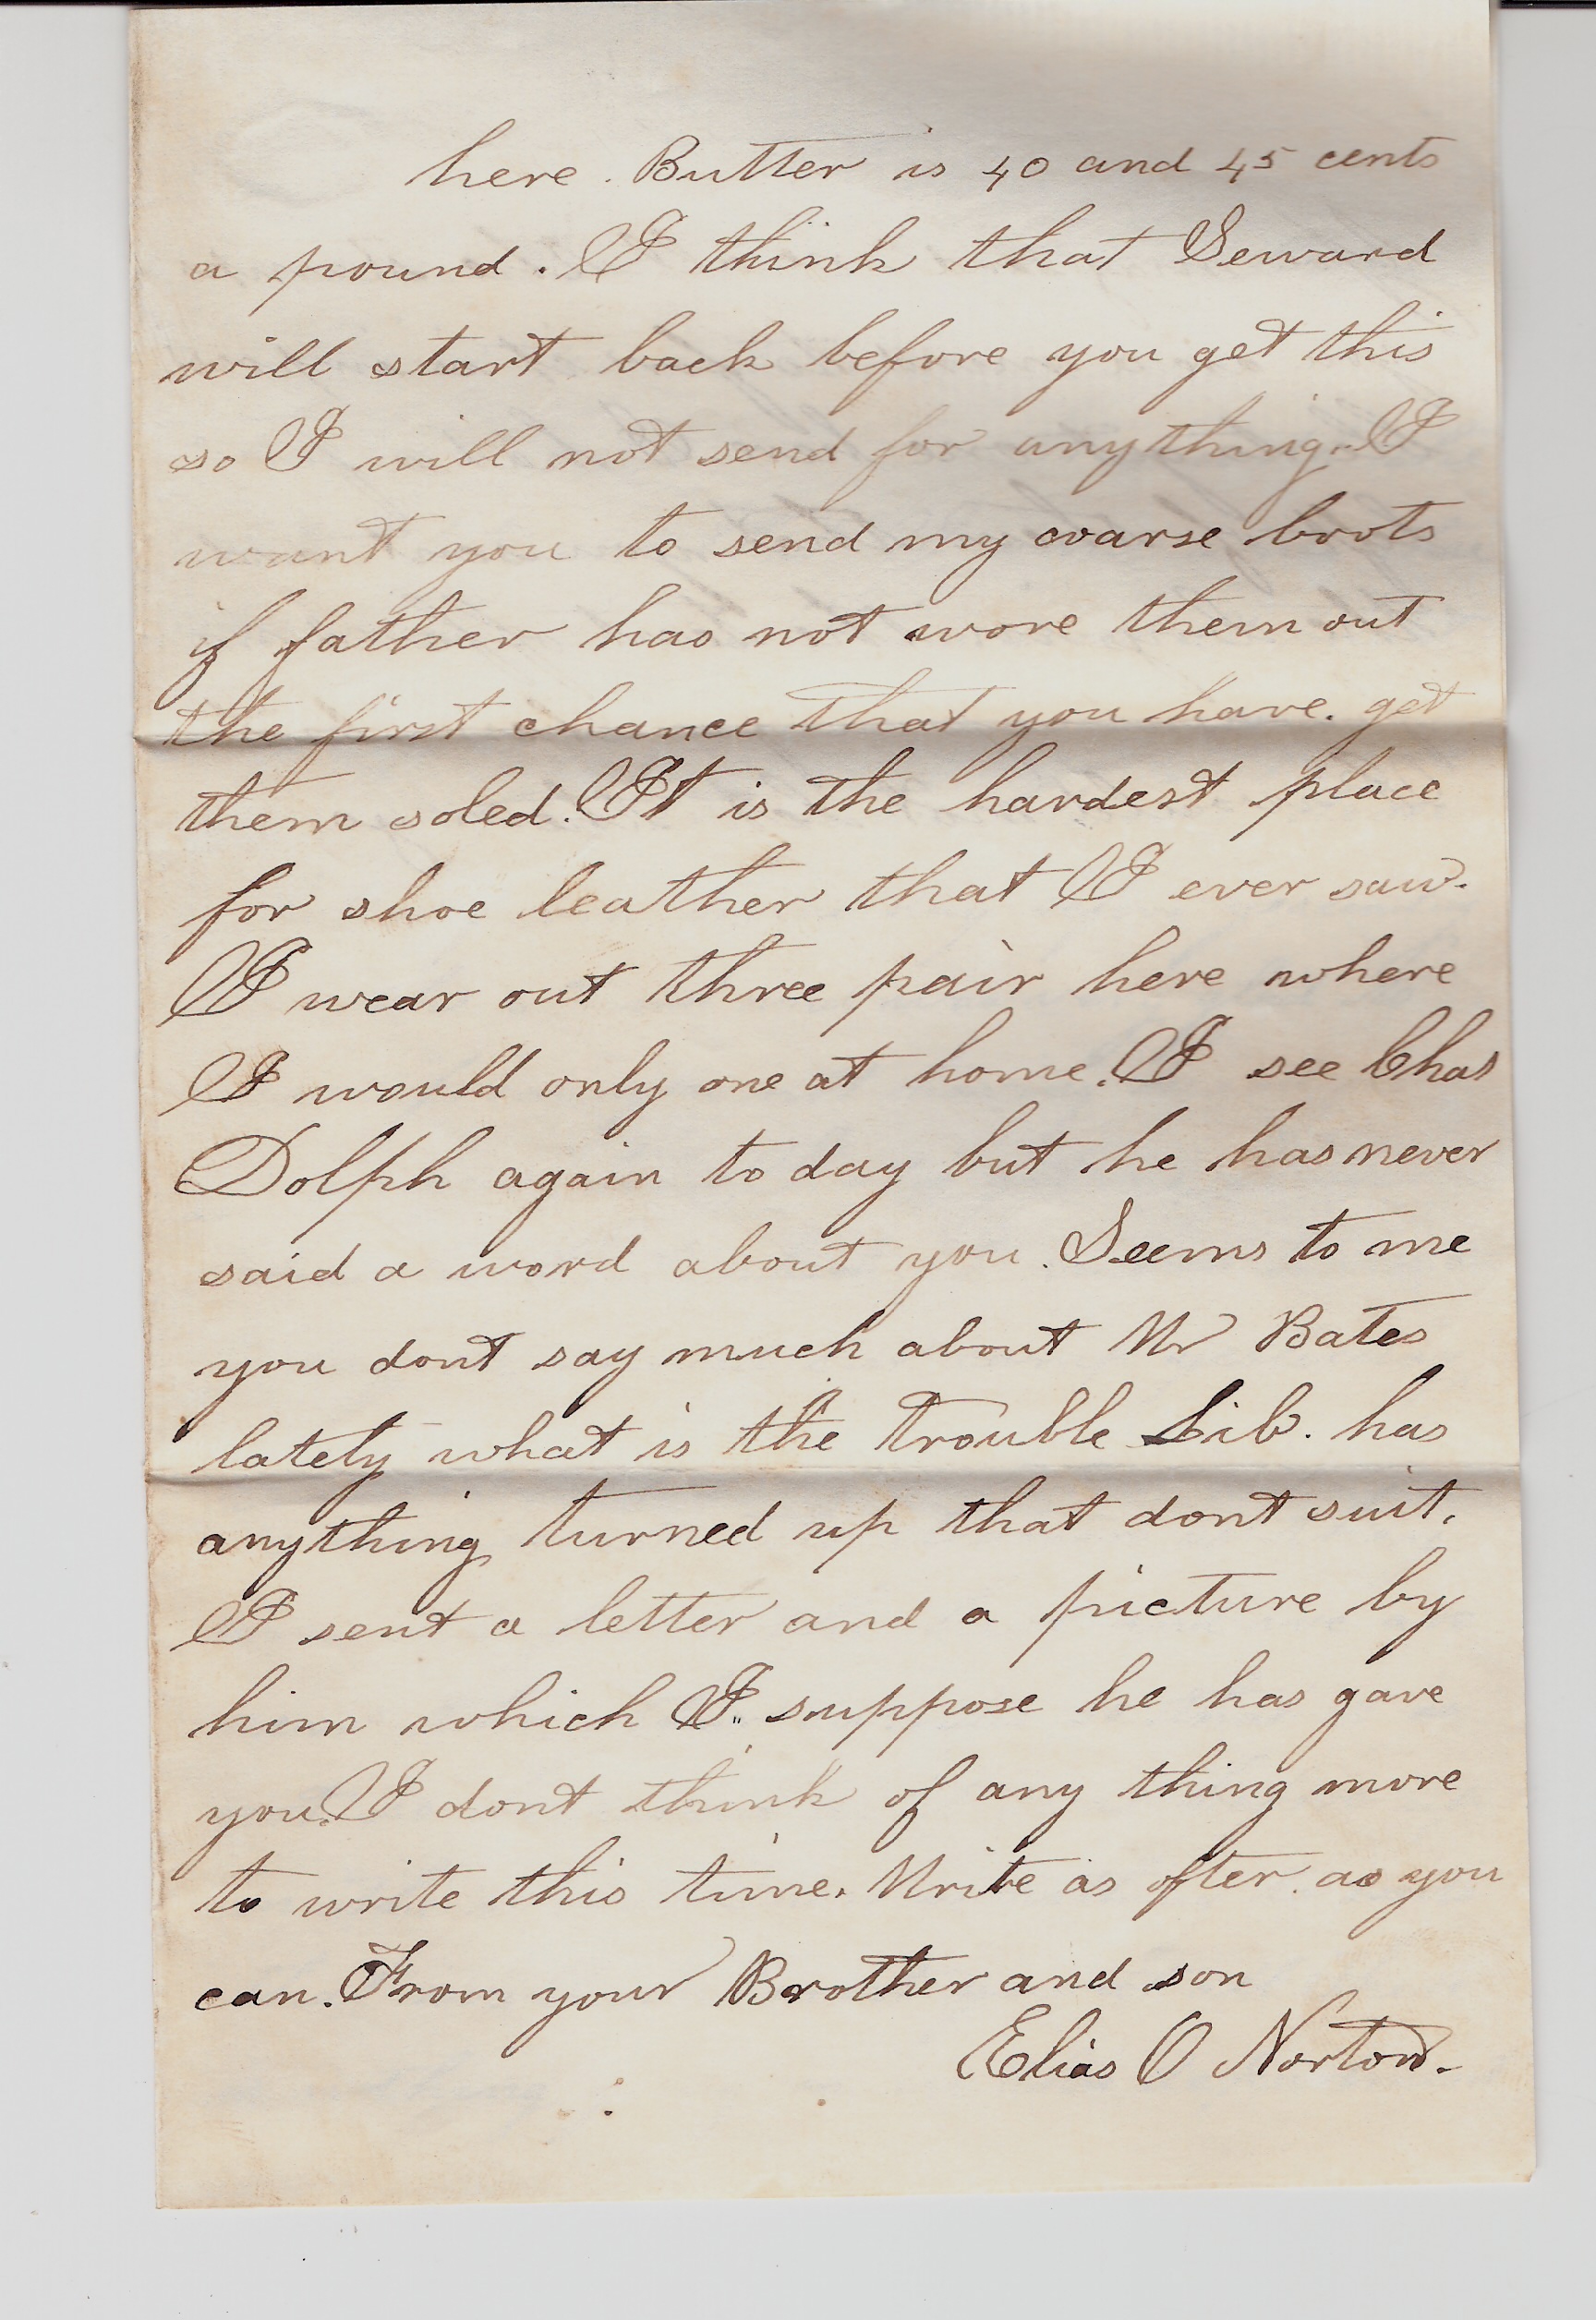 here. Butter is 40 and 45 cents
a pound. I think that Seward
will start back before you get this
so I will not send for anything. I
want you to send my coarse boots
if father has not wore them out
the first chance that you have. get
them soled. It is the hardest place
for shoe leather that I ever saw.
I wear out three pair here where
I would only one at home. I see Chas
Dolph again to day but he has never
said a word about you. Seems to me
you dont say much about Mr Bates
lately what is the trouble Lib. has
anything turned up that dont suit.
I sent a letter and a picture by
him which I suppose he has gave
you. I dont think of any thing more
to write this time. Write as often as you
can. From your Brother and son
Elias O Norton.